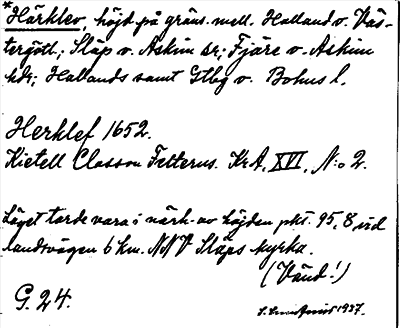 *Härklev, höjd på gräns. mell. Halland o. Väs-
tergötl.; Släp o. Askim sr; Fjäre o. Askim
hdr; Hallands samt Gtbg o. Bohus l.
Herklef 1652.
Kietell Classon Felterus. KrA, XVI, N:o 2.
Läget torde vara i närh. av höjden pkt. 95,8 vid
landsvägen 6 km. NNV Släps kyrka.
(Vänd!)
G. 24.
1937.